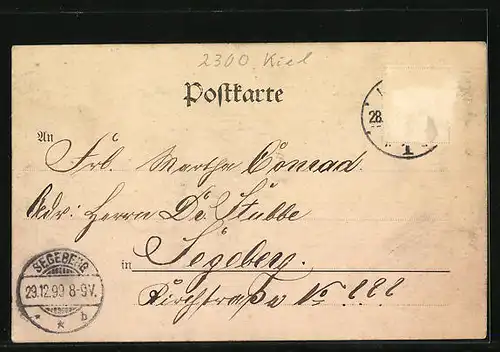 2300 Kiel
Postkarte
28.
1
An
Frl. Martha Conrad.
Adr: Herrn Dr. Stubbe
in Segeberg.
Kirchstraße No
SEGEBERG
29.12.99 8-9V.
* b